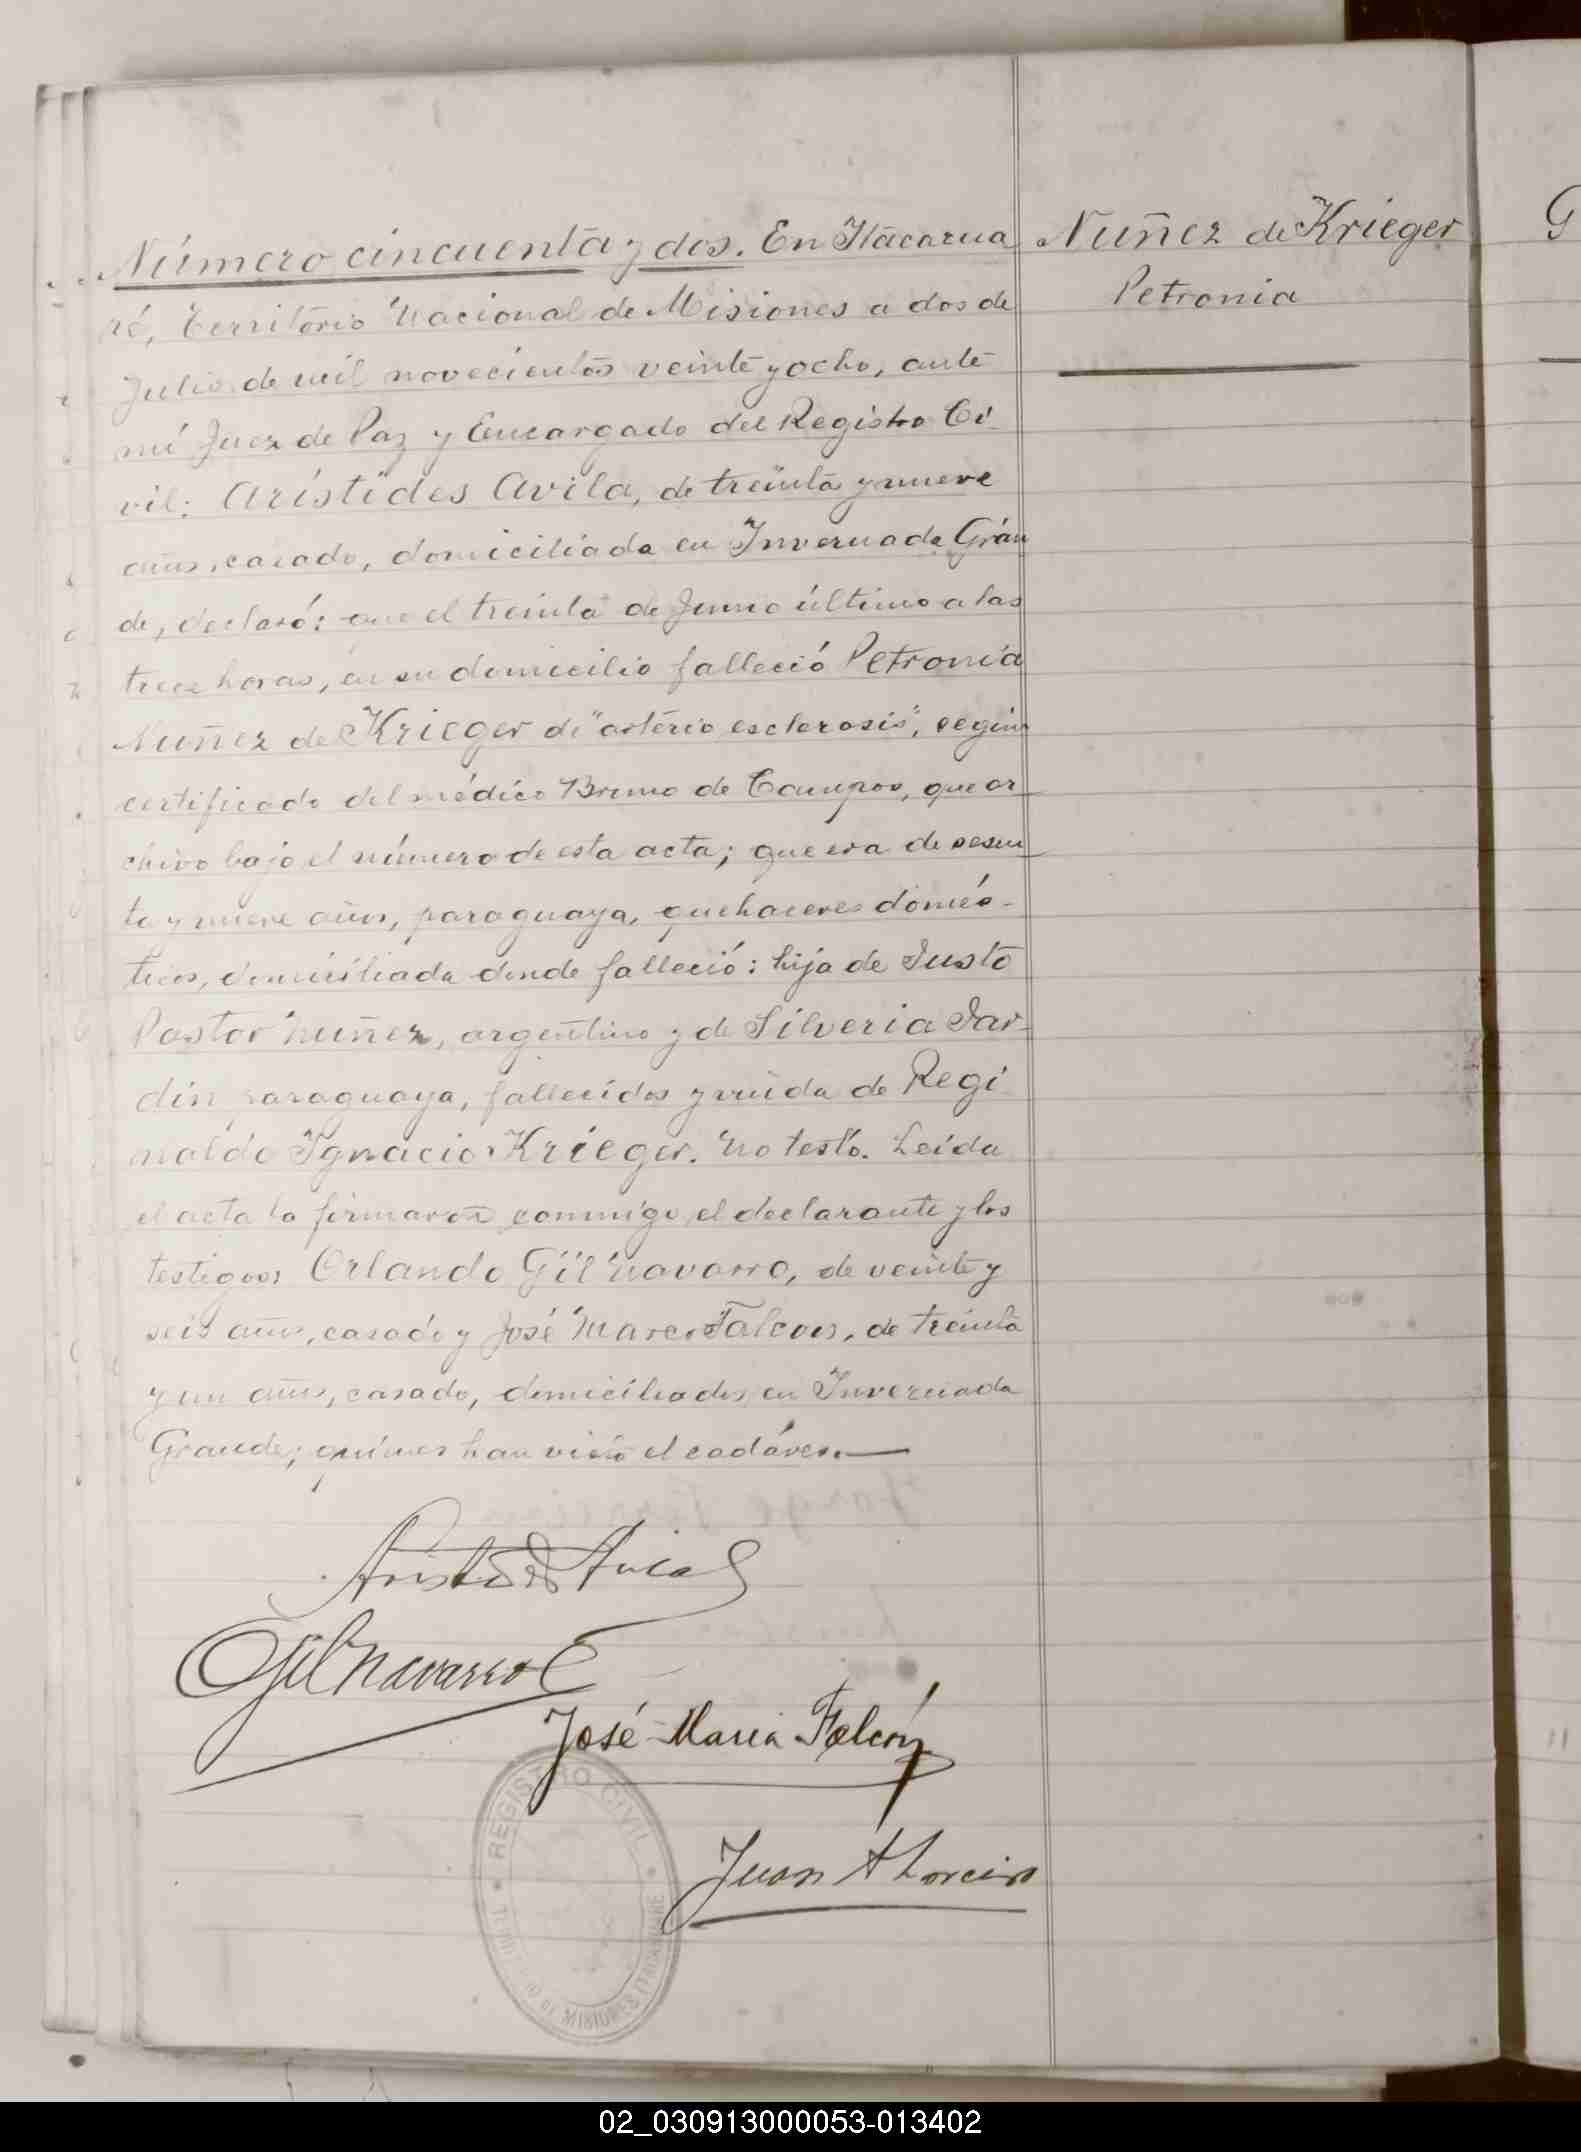 Número cincuenta y dos. En Itacarua
ré, Territorio Nacional de Misiones a dos de
Julio de mil novecientos veinte y ocho, ante
mí Juez de Paz y Encargado del Registro Ci
vil: Arístides Avila, de treinta y nueve
años, casado, domiciliado en Invernada Gran
de, declaró: que el treinta de Junio último a las
trece horas, en su domicilio falleció Petronia
Nuñez de Krieger de "arterio esclerosis", según
certificado del médico Bruno de Campos, que ar_
chivo bajo el número de esta acta; que era de sesen_
ta y nueve años, paraguaya, quehaceres domés-
ticos, domiciliada donde falleció: hija de Justo
Pastor Nuñez, argentino y de Silveria Jar_
din paraguaya, fallecidos y viuda de Regi
naldo Ignacio Krieger. No testó. Leída
el acta la firmaron conmigo el declarante y los
testigos Orlando Gil Navarro, de veinte y
seis años, casado y José Marco Falcon, de treinta
y un años, casado, domiciliados en Invernada
Grande; quienes han visto el cadáver.
Aristides Avila
OGilNavarro
José Maria Falcón
Juan A
REGISTRO CIVIL
DE MISIONES ITACARUARE
Nuñez de Krieger
Petronia
G
02_030913000053-013402